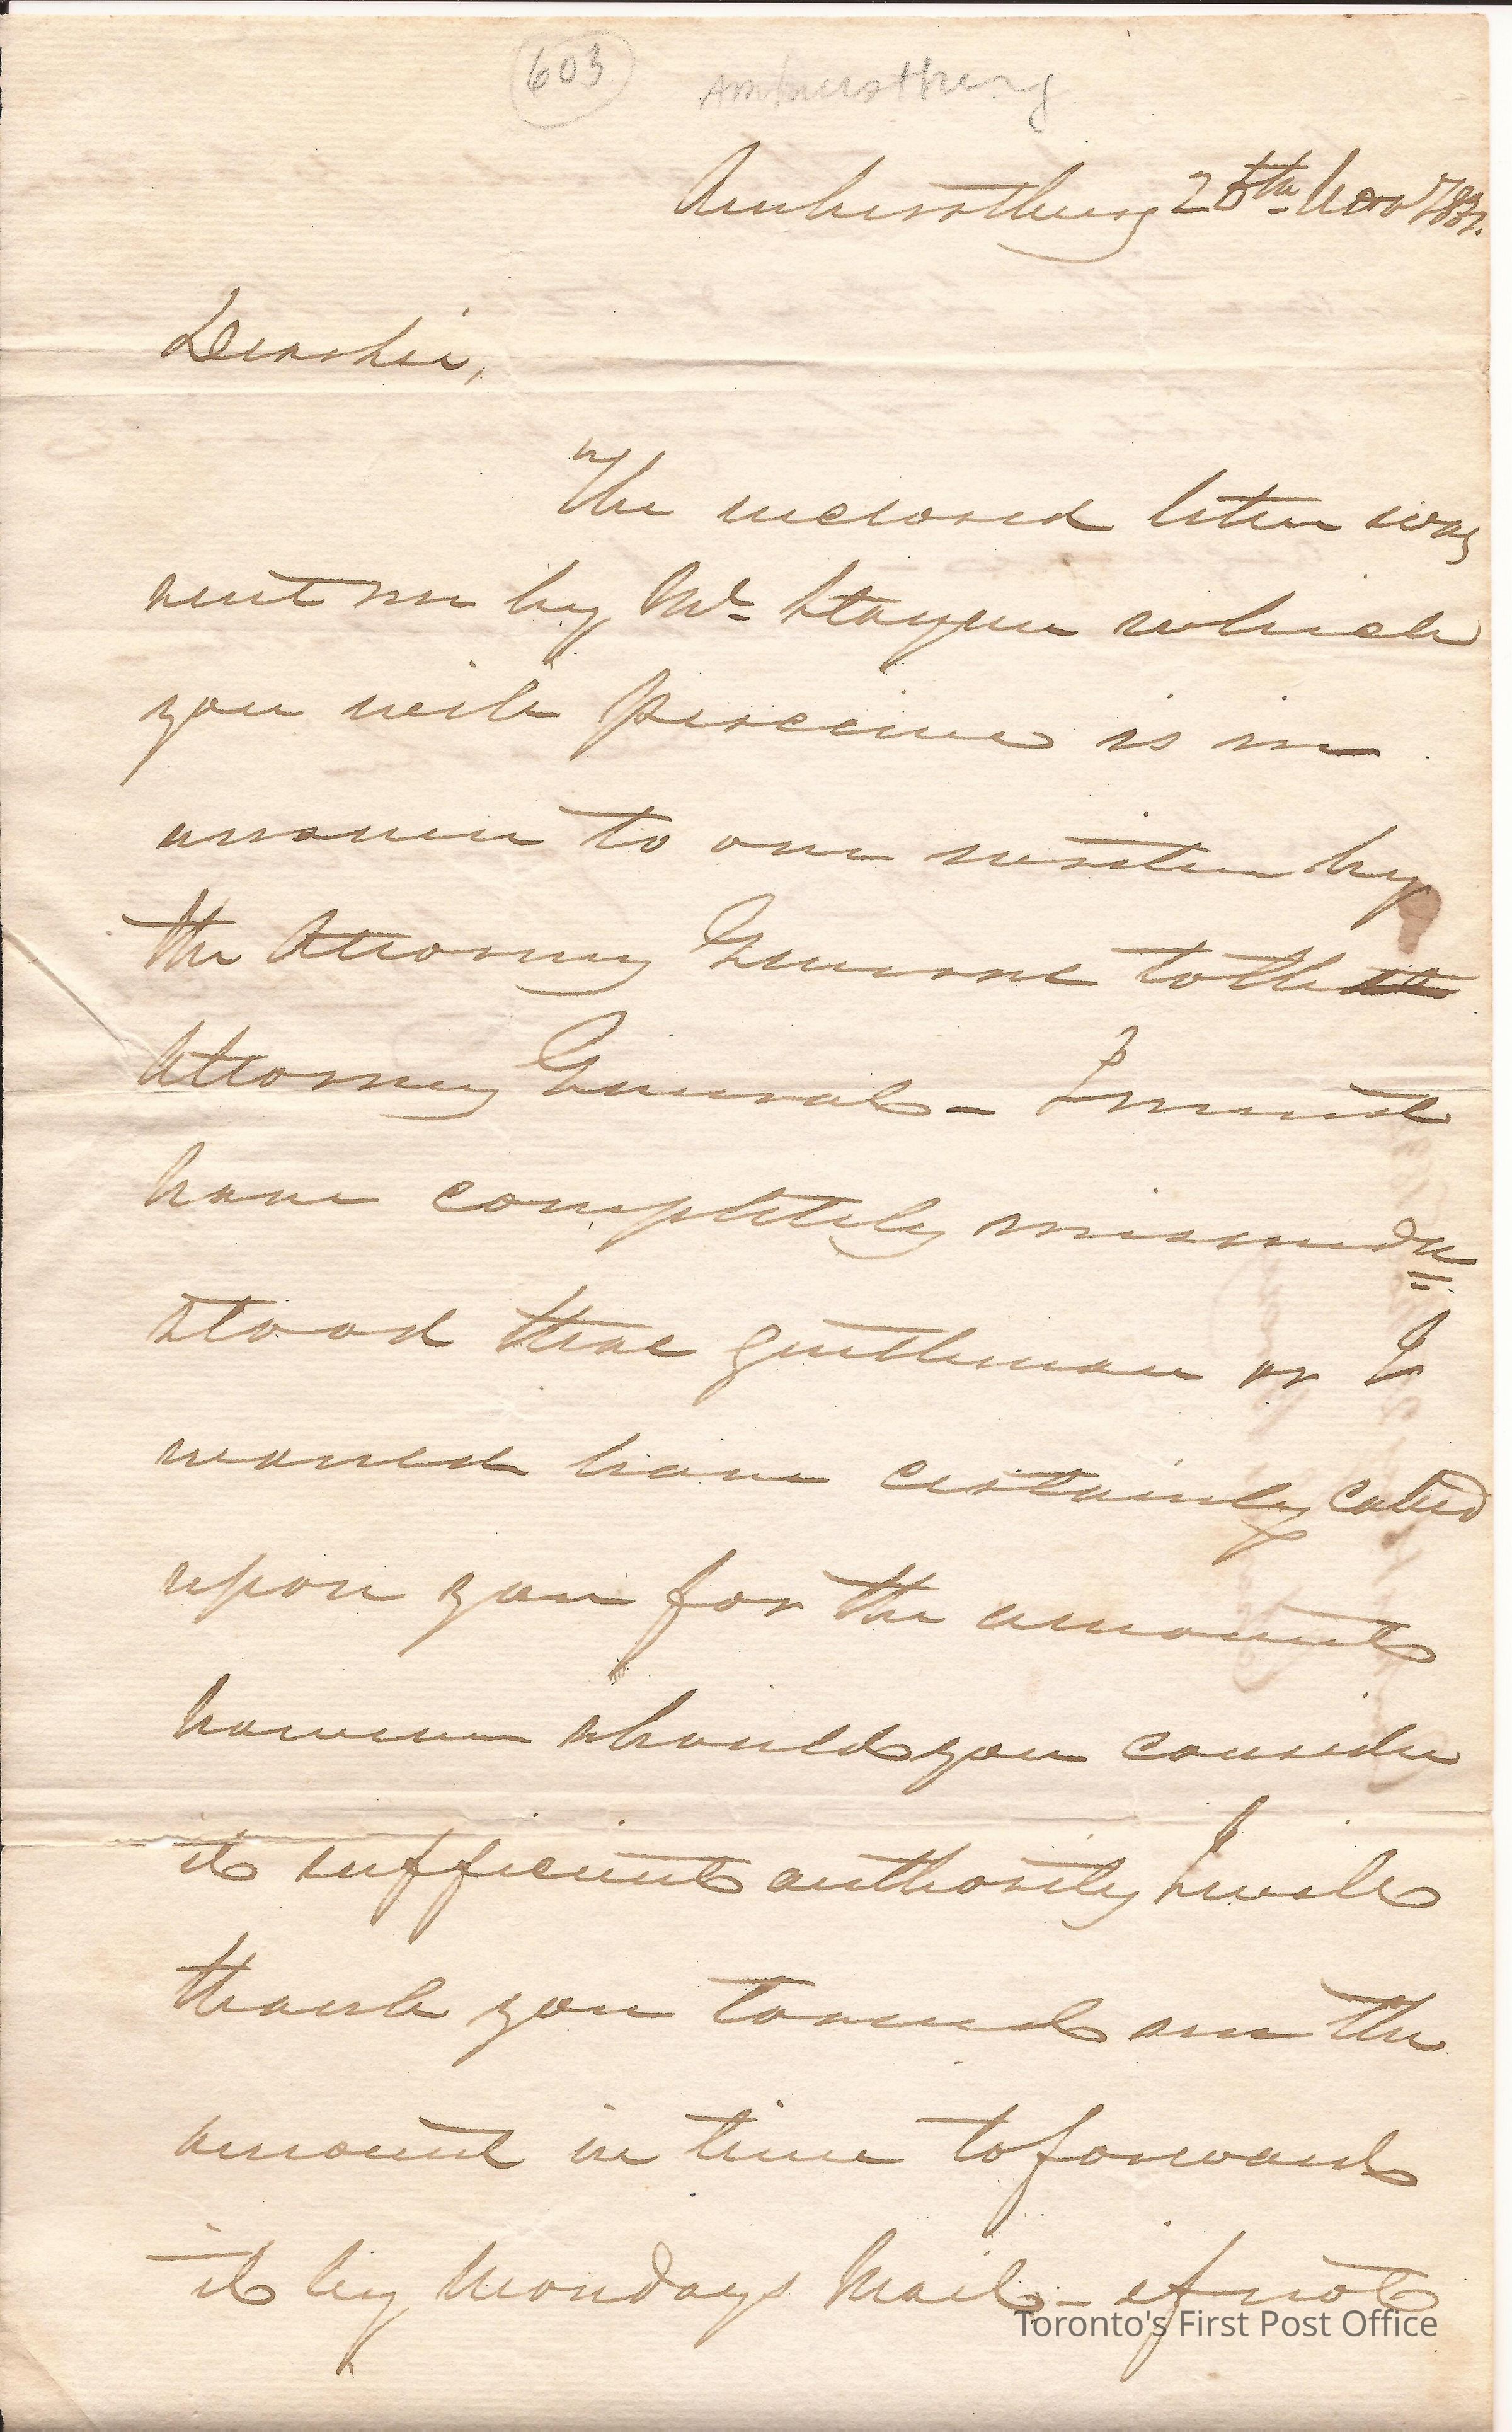 603 Amherstburg
Amherstburg 28th Nov
Dear Sir,
The inclosed letter was
sent me by Mr. Stayner which
you will perceive is in
answer to one written by
the Attorney General to the
Attorney General – I must
have completely misunder=
stood that gentleman or I
would have certainly called
upon you for the amount
however should you consider
it sufficient authority I will
thank you to send me the
amount in time to forward
it by Mondays Mail – if not
Toronto's First Post Office